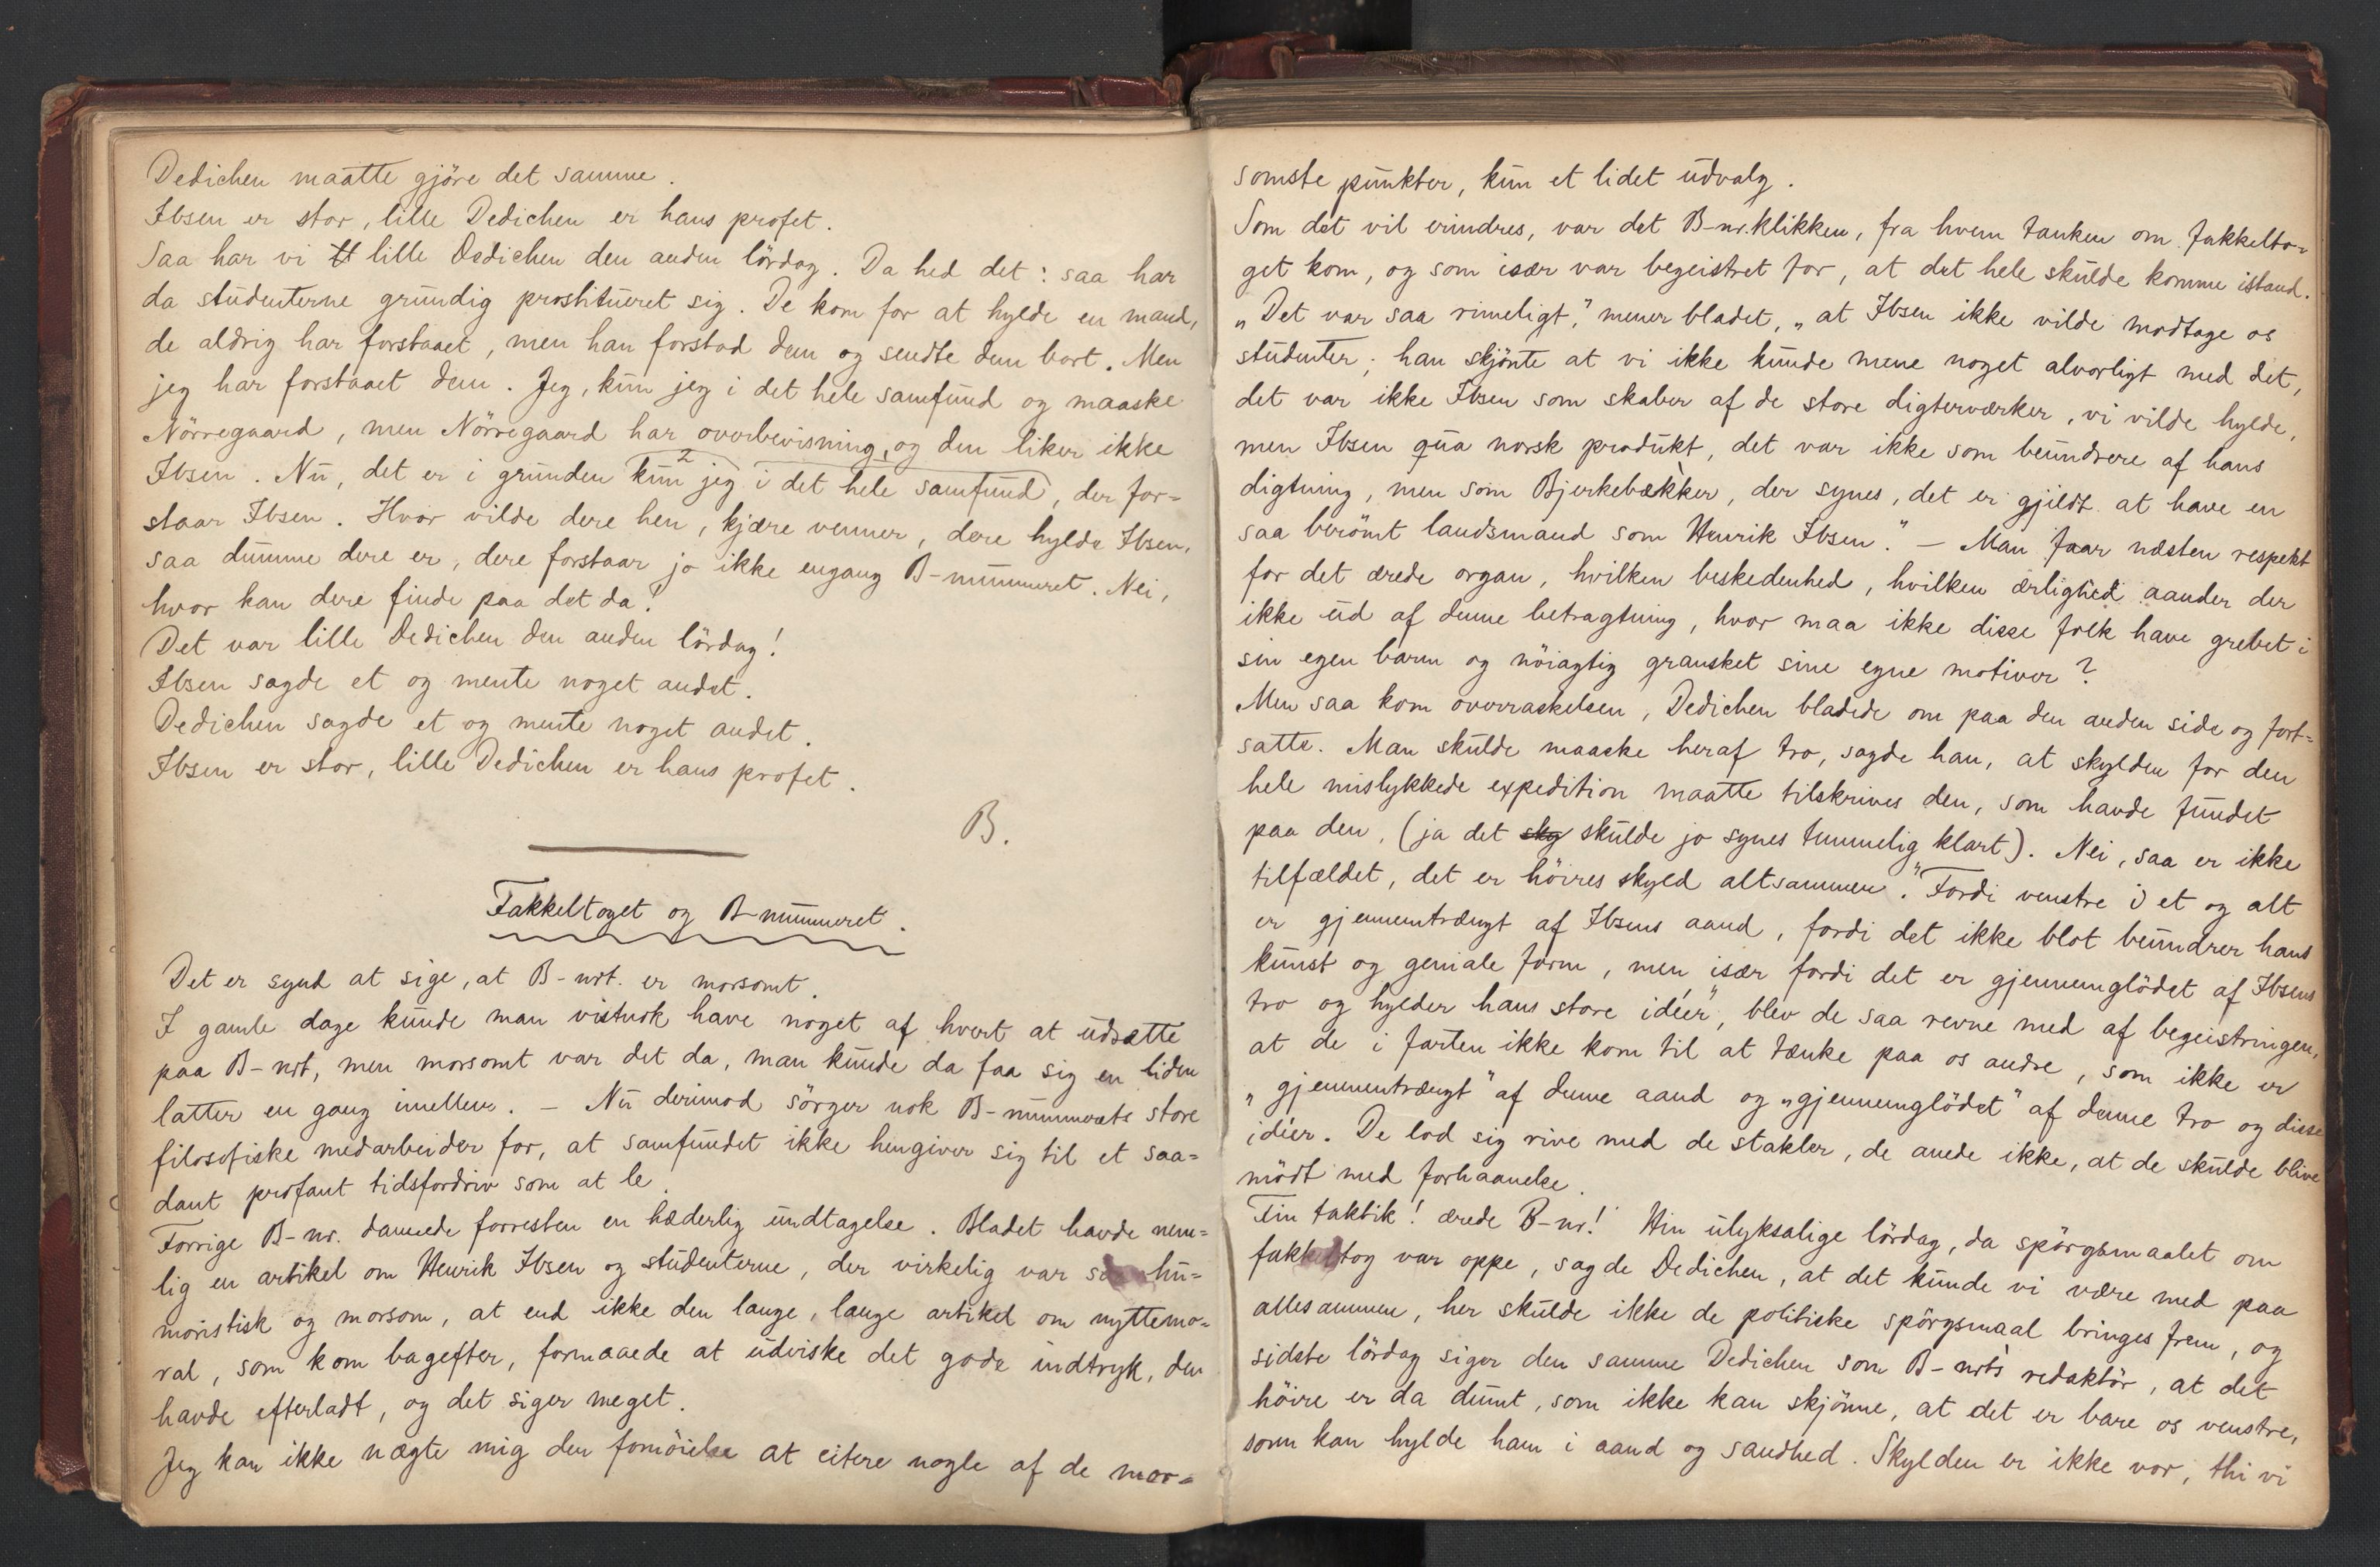 Dedichen maatte gjöre det samme.
Ibsen er stor, lille Dedichen er hans profet.
Saa har vi lille Dedichen den anden lördag. Da hed det: saa har
da studenterne grundig prostitueret sig. De kom for at hylde en mand,
de aldrig har forstaaet, men han forstod dem og sendte dem bort. Men
jeg har forstaaet dem. Jeg, kun jeg i det hele samfund og maaske
Nörregaard, men Nörregaard har overbevisning, og den liker ikke
Ibsen. Nu, det er i grunden kun 2 jeg i det hele samfund, der for=
staar Ibsen. Hvor vilde dere hen, kjære venner, dere hylde Ibsen,
saa dumme dere er, dere forstaar jo ikke engang B-nummeret. Nei,
hvor kan dere finde paa det da?
Det var lille Dedichen den anden lördag!
Ibsen sagde et og mente noget andet.
Dedichen sagde et og mente noget andet.
Ibsen er stor, lille Dedichen er hans profet.
B.
Fakkeltoget og B-nummeret.
Det er synd at sige, at B-nrt. er morsomt.
I gamle dage kunde man vistnok have noget af hvert at udsætte
paa B-nrt, men morsomt var det da, man kunde da faa sig en liden
latter en gang imellem. – Nu derimod sörger nok B-nummerets store
filosofiske medarbeider for, at samfundet ikke hengiver sig til et saa=
dant profant tidsfordriv som at le.
Forrige B-nr. dannede forresten en hæderlig undtagelse. Bladet havde nem=
lig en artikel om Henrik Ibsen og studenterne, der virkelig var saa hu=
moristisk og morsom, at end ikke den lange, lange artikel om nyttemo=
ral, som kom bagefter, formaaede at udviske det gode indtryk, den
havde efterladt, og det siger meget.
Jeg kan ikke nægte mig den fornöielse at citere nogle af de mor=
somste punkter, kun et lidet udvalg.
Som det vil erindres, var det B-nr.klikken, fra hvem tanken om fakkelto=
get kom, og som især var begeistret for, at det hele skulde komme istand.
„Det var saa rimeligt," mener bladet, „at Ibsen ikke vilde modtage os
studenter; han skjönte at vi ikke kunde mene noget alvorligt med det,
det var ikke Ibsen som skaber af de store digterværker, vi vilde hylde,
men Ibsen qua norsk produkt, det var ikke som beundrere af hans
digtning, men som Bjerkebækker, der synes, det er gjildt at have en
saa berömt landsmand som Henrik Ibsen." – Man faar næsten respekt
for det ærede organ, hvilken beskedenhed, hvilken ærlighed aander der
ikke ud af denne betragtning, hvor maa ikke disse folk have grebet i
sin egen barm og nöiagtig gransket sine egne motiver?
Men saa kom overraskelsen, Dedichen bladede om paa den anden side og fort=
satte. Man skulde maaske heraf tro, sagde han, at skylden for den
hele mislykkede expedition maatte tilskrives den, som havde fundet
paa den, (ja det sky skulde jo synes temmelig klart). Nei, saa er ikke
tilfældet, det er höires skyld altsammen. "Fordi venstre i et og alt
er gjennemtrængt af Ibsens aand, fordi det ikke blot beundrer hans
kunst og geniale form, men især fordi det er gjennemglödet af Ibsens
tro og hylder hans store idéer", blev de saa revne med af begeistringen,
at de i farten ikke kom til at tænke paa os andre, som ikke er
„gjennemtrængt" af denne aand og „gjennemglödet" af denne tro og disse
idéer. De lod sig rive med de stakler, de anede ikke, at de skulde blive
mödt med forhaanelse.
Fin taktik! ærede B-nr! Hin ulyksalige lördag, da spörgsmaalet om
fakkeltog var oppe, sagde Dedichen, at det kunde vi være med paa
allesammen, her skulde ikke de politiske spörgsmaal bringes frem, og
sidste lördag siger den samme Dedichen som B-nrts redaktör, at det
höire er da dumt, som ikke kan skjönne, at det er bare os venstre,
som kan hylde ham i aand og sandhed. Skylden er ikke vor, thi vi